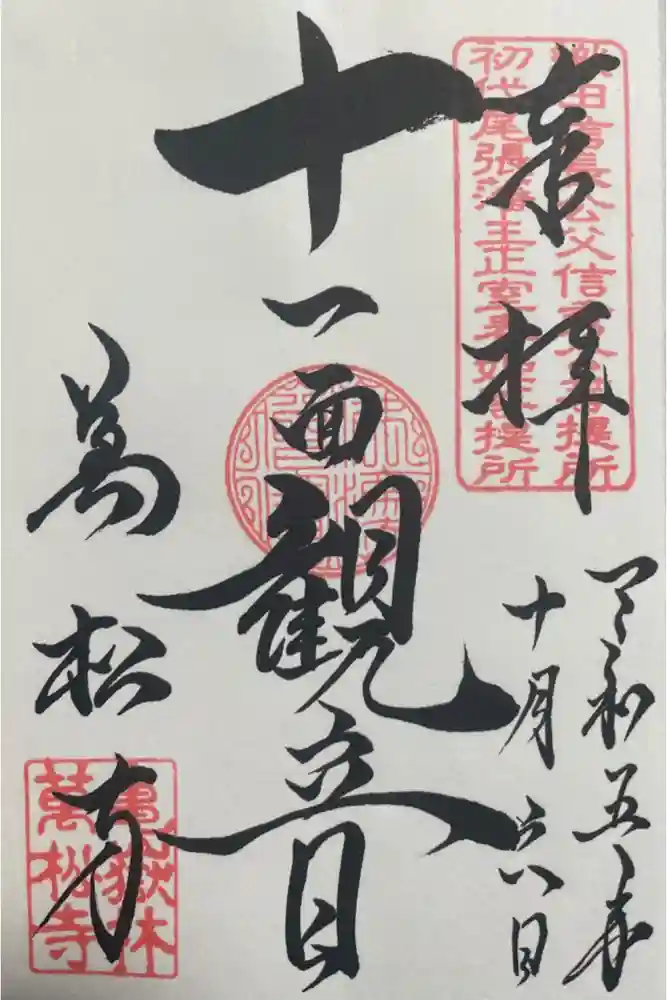 奉拝
織田信長公父信秀公菩提所
初代尾張藩主正室春姫菩提所
令和五年
十月六日
十一面観音
萬松寺
亀嶽林
萬松寺